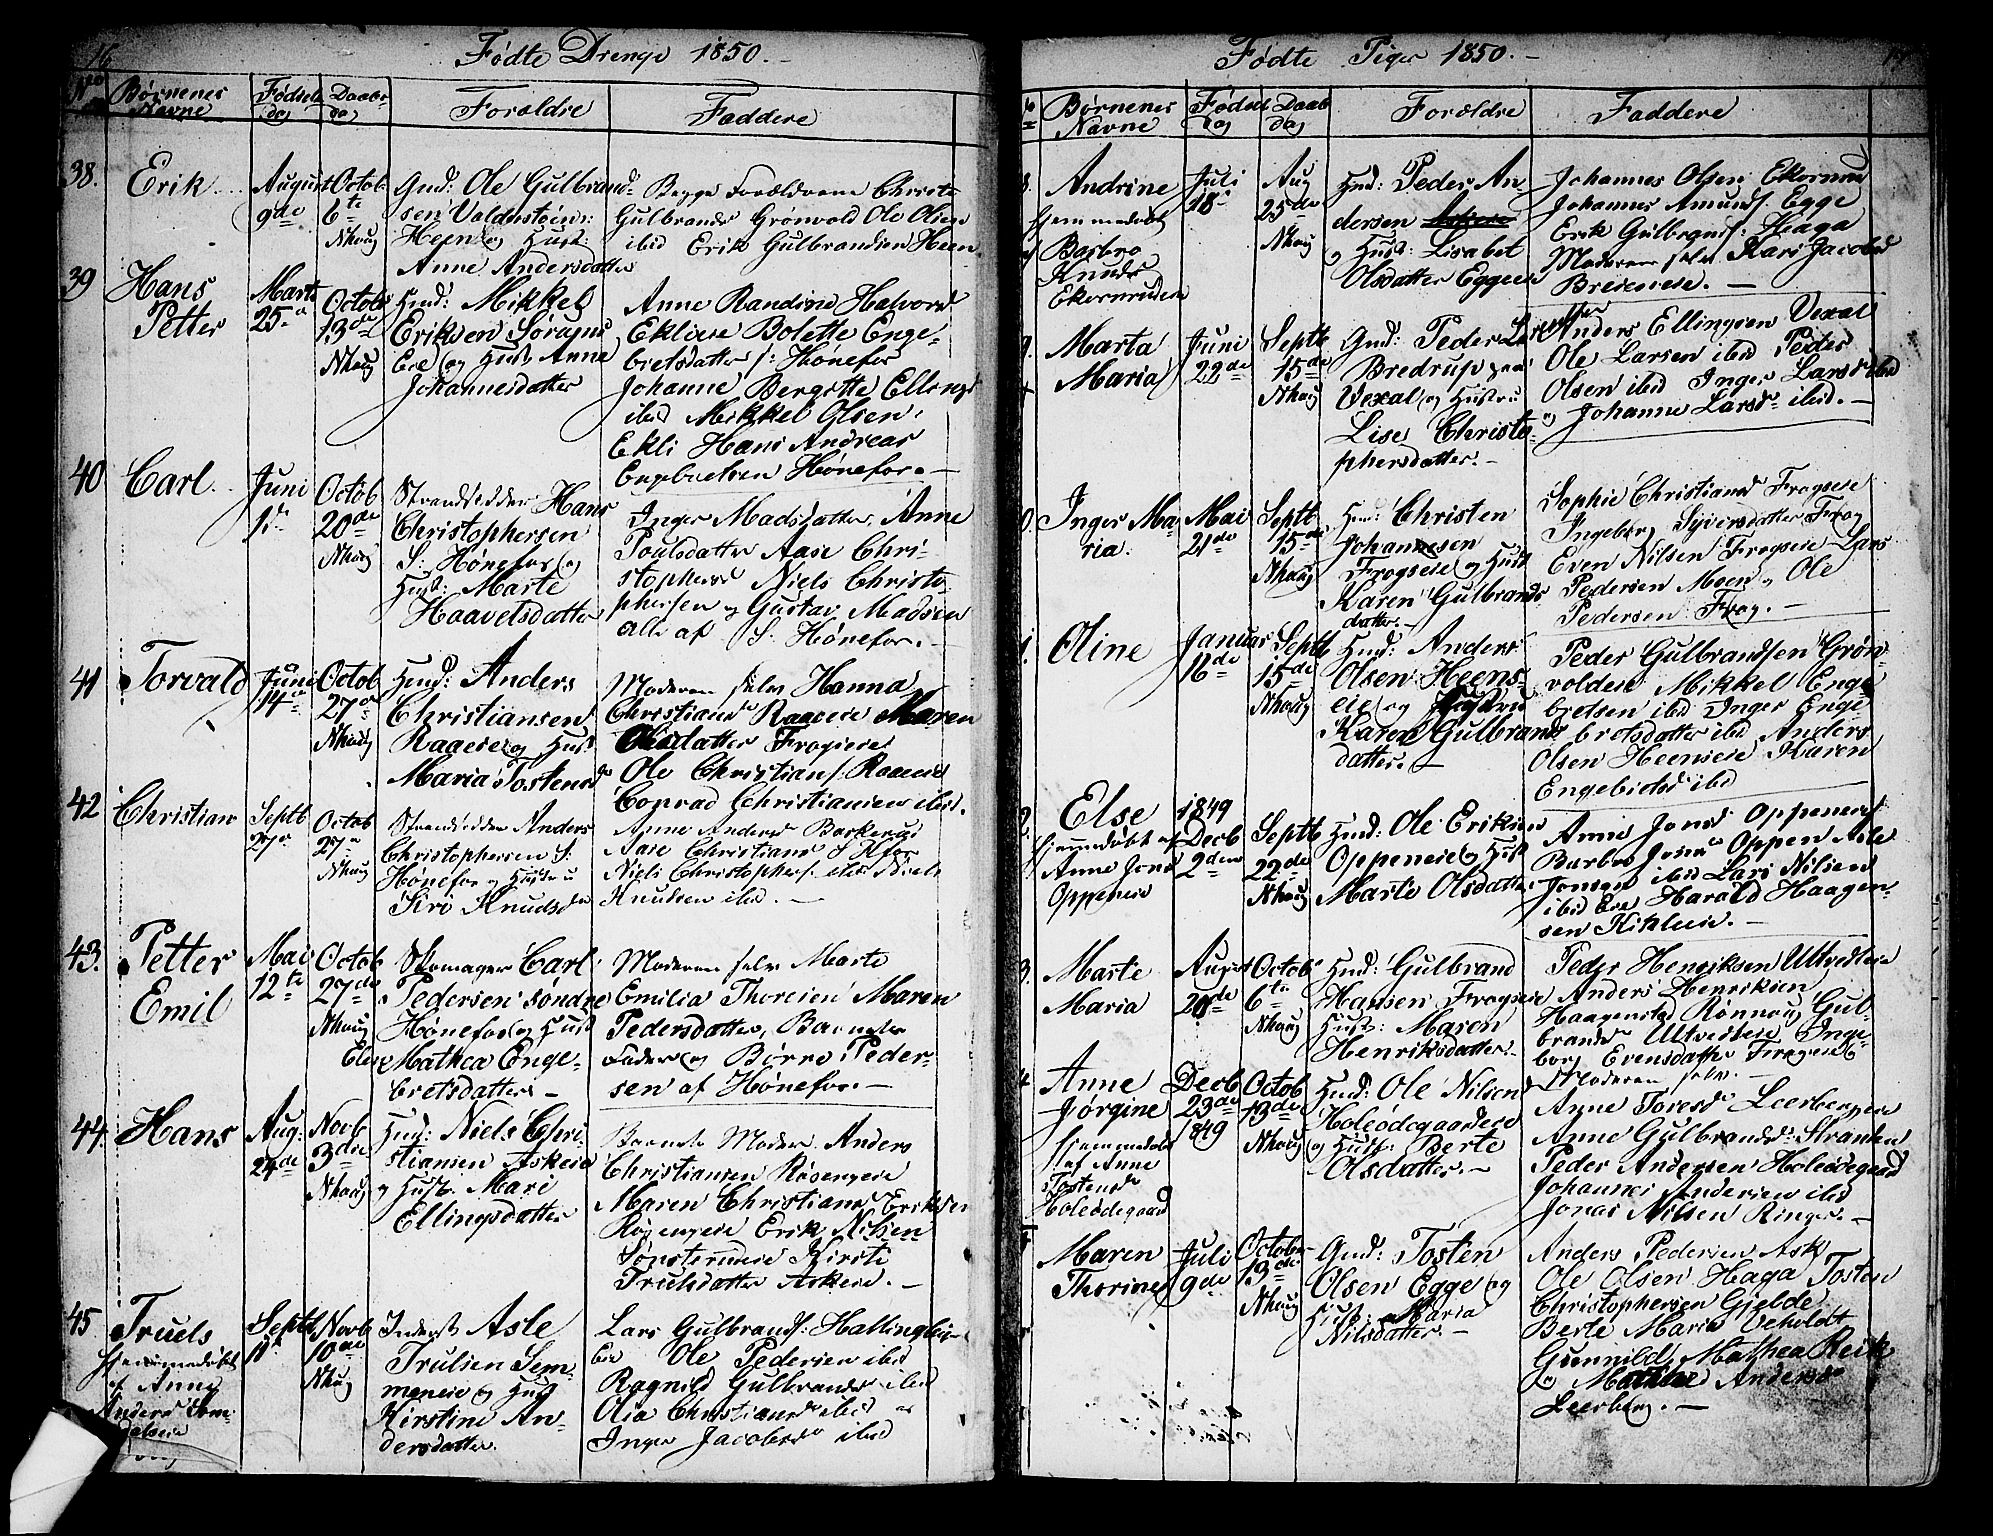 16
Fødte Drenge 1850.
No
Børnenes Navne
Fødsels dag
Daabs dag
Forældre
Faddere
38.
Erik
August 9de
Octob 6te Nhoug
Gmd: Ole Gulbrand-
sen Valdensteins:
Heen og Hust:
Anne Andersdatter
Begge Forældrene Christi
Gulbrands Grønvold Ole Olsen
ibid Erik Gulbrandsen Heen
39
Hans
Petter
Marts 25.
Octobr 13de Nhoug
Huusd: Mikkel
Eriksen Søragnu
Eie og Hust Anne
Johannesdatter
Anne Randine Halvord
Eklieie Bolette Enge-
bretsdatter S: Hønefos
Johanne Bergitte Ellings
ibid Mikkel Olsen
Ekli Hans Andreas
Engebretsen Hønefos.
40
Carl
Juni 1ste
Octob 20de Nhoug
Strandsidder Hans
Christophersen
S: Hønefos og
Hust: Marte
Haavelsdatter
Inger Madsdatter, Anne
Poulsdatter Aase Chri-
stophersd Niels Christo-
phersen og Gustav Madsen
alle af S: Hønefos.
41
Torvald
Juni 14
Octob 27 Nhoug
Huusd: Anders
Christiansen
Raaeie og Hust
Maria Tostensd
Moderen selv Hanna
Christiansd Raaeie Maren
Olsdatter Frogseie
Ole Christians: Raaeie
Conrad Christiansen ibid.
42
Christian
Septb 27
Octob 27 Nhoug
Strandsidder Anders
Christophersen S:
Hønefos og Hustru
Siri Knudsd
Anne Andersd Barkerud
Aase Christiansd S Hfos
Niels Christophers: ibid Niels
Knudsen ibid.
43.
Petter
Emil
Mai 12te
Octob 27de Nhoug
Skomager Carl
Pedersen søndre
Hønefos og Hust
Elen Mathea Enge-
bretsdatter
Moderen selv Marte
Emilia Thoresen Maren
Pedersdatter, Barnets
Fader og Børre Peder-
sen af Hønefos.
44.
Hans
Aug: 24de
Novb 3die Nhoug
Huusd: Niels Chri-
stiansen Askeie
og Hust. Mari
Ellingsdatter
Barnets Moder Anders
Christiansen Røsengeie
Maren Christiansd Eriksen
Røsengeie Erik Nilsen
Tønsterudeie Kirsti
Truelsdatter Askeie.
45
Truels
hjemmedøbt
af Anne
Anders Sem-
Septb 11te
Novb 10de Nhoug
Inderst Asle
Trulsen Sem-
meneie og Hust
Kirstine An-
dersdatter.
Lars Gulbrands: Hallingby-
eie Ole Pedersen ibid
Ragnild Gulbrandsd ibid
Olia Christiansd ibid og
Inger Jacobsd ibid
Fødte Piger 1850.
Børnenes Navne
Fødsels dag
Daabs dag
Forældre
Faddere
Andrine
hjemmedøbt
af Barbro
Knudsd
Ekornruden
Juli 18
Aug 25de Nhoug
Huusd: Peder An-
dersen
og Hust: Lisabet
Olsdatter Eggeeie
Johannes Olsen Ekornrud
Johannes Amunds: Egge
Erik Gulbrands: Haga
Moderen selv Kari Jacobsd
Breieneie.
Marta
Maria
Juni 22de
Septb 15de Nhoug
Gmd: Peder Larsen
Bredrup paa
Vexal og Hustru
Lise Christo-
phersdatter.
Anders Ellingsen Vexal
Ole Larsen ibid Peder
Olsen ibid Inger Larsd ibid
og Johanne Larsd ibid.
Inger Ma
ria.
Mai 21de
Septb 15de Nhoug
Huusd: Christen
Johannesen
Frogseie og Hust
Karen Gulbrands
datter.
Sophie Christiansd Frogseie
Ingeborg Syversdatter Frog
Even Nilsen Frogseie Lars
Pedersen Moen og Ole
Pedersen Frog.
Oline
Januar 16de
Septb 15de Nhoug
Huusd: Anders
Olsen Heens-
eie og Hustru
Karen Gulbrands
datter.
Peder Gulbrandsen Grøn-
volden Mikkel Enge
bretsen ibid Inger Enge
bretsdatter ibid Anders
Olsen Heenseie Karen
Engebretsd ibid
Else
hjemmedøbt af
Anne Jonsd
Oppeneie
1849 Decb 2den
Septb 22de Nhoug
Huusd: Ole Eriksen
Oppeneie og Hust
Marte Olsdatter
Anne Jonsd Oppeneie
Barbro Jonsd Oppen Asle
Jonsen ibid Lars Nilsen
ibid Eie Harald Haagen-
sen Kihleie.
Marte
Maria
August 20de
Octob 6te Nhoug
Huusd: Gulbrand
Hansen Frogseie
Hust: Maren
Henriksdatter.
Peder Henriksen Utvedteie
Anders Henriksen
Haagenstad Rønnoug Gul-
brandsd Utvedteie Inge-
borg Evensdatter Frogseie og
Moderen selv.
Anne
Jørgine
hjemmedøbt
af Anne
Tostensd
Holeødegaard
Decb 23de 1849
Octob 13de Nhoug
Huusd: Ole Nilsen
Holeødegaardeie
og Hust: Berte
Olsdatter.
Anne Toresd Leerbergeie
Anne Gulbrandsd: Stranden
Peder Andersen Holeødegaard
Johannes Andersen ibid
Jonas Nilsen Ringer.
Maren
Thorine
Juli 9de
October 13de Nhoug
Gmd: Tosten
Olsen Egge og
Hust: Maria
Nilsdatter.
Anders Pedersen Ask
Ole Olsen Haga Tosten
Christophersen Gjelde
Berte Maria Veholdt
Gunnild Mathea Reik
og Mathea Andersd
Leerberg.